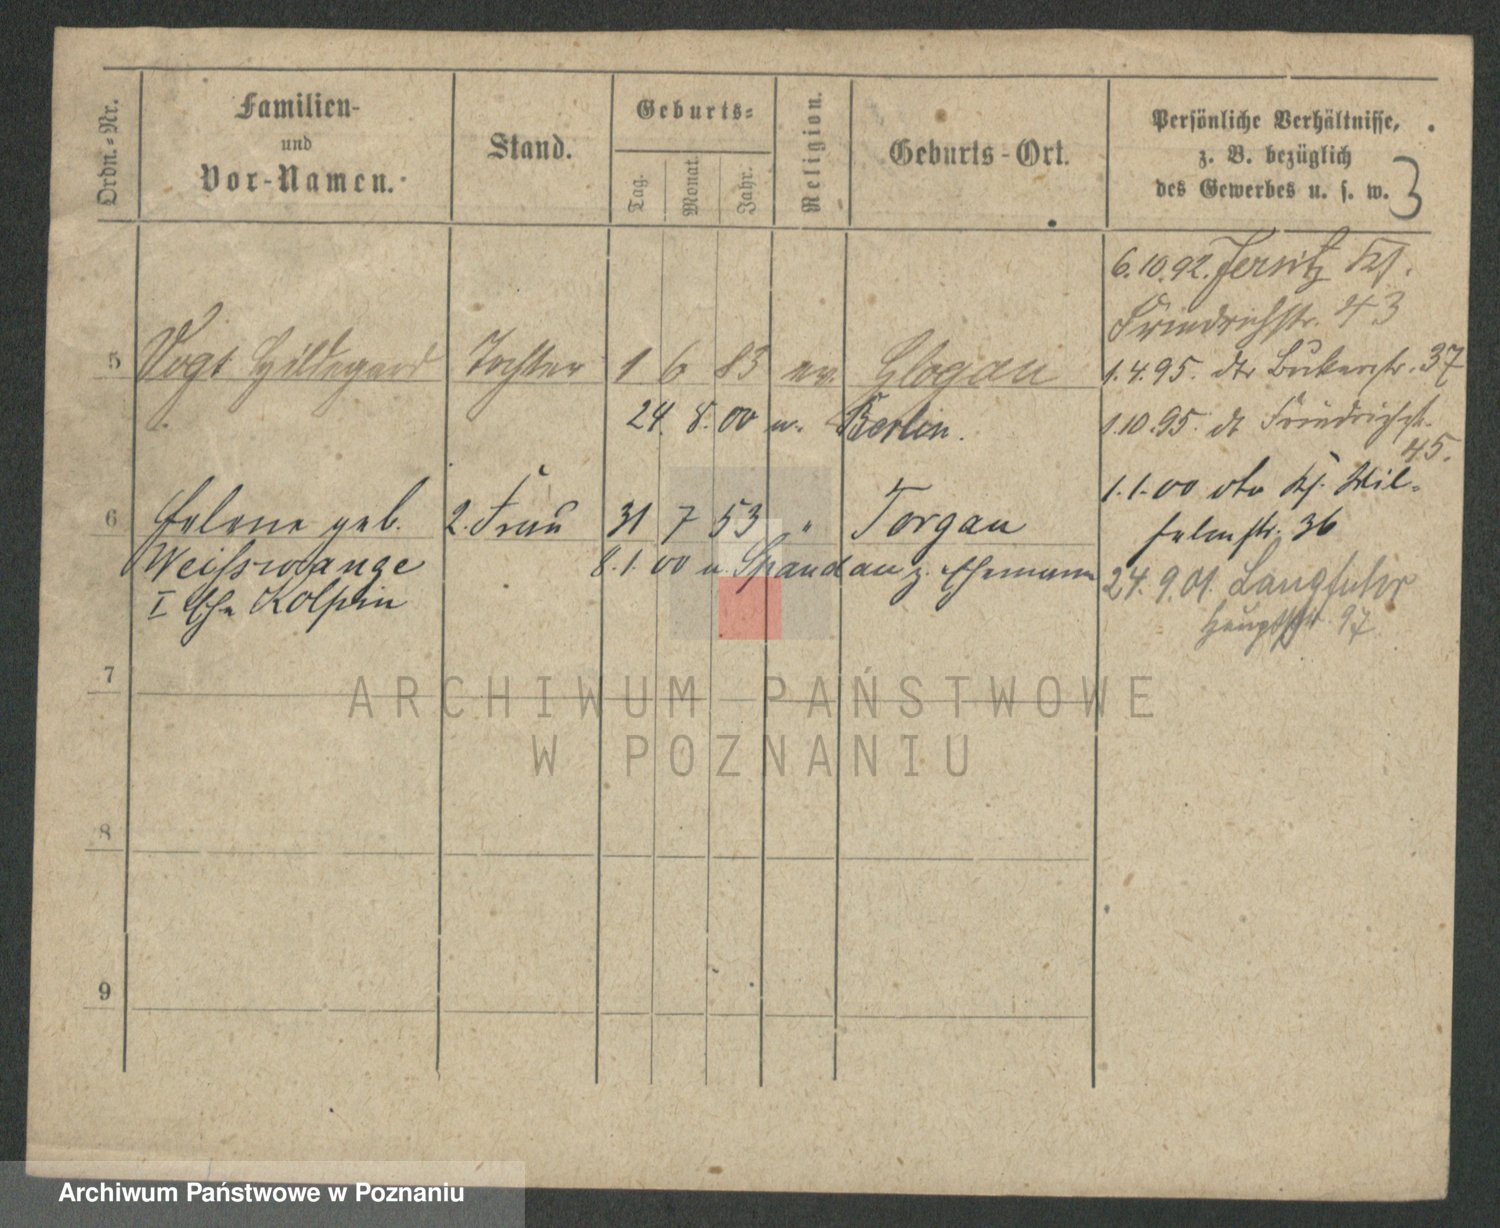 Ordn.-Nr.
Familien-
und
Vor-Namen.
Stand.
Geburts-
Tag.
Monat.
Jahr.
Religion.
Geburts-Ort.
Persönliche Verhältnisse,
z. B. bezüglich
des Gewerbes u. s. w.
3
6.10.92. Jersitz
Friedrichstr. 43
5 Vogt Hildegard Tochter 1 6 83 ev. Glogau
1.4.95. Bukerstr. 37
24. 8. 00 n. Berlin.
1.10.95. Friedrichst.
45.
1.1.00 dto Wil-
6 Helene geb. 2. Frau 31 7 53 " Torgau
helmstr. 36
Weisswange
8.1.00 n. Spandau z. Ehemann
24.9.01. Langfuhr
I Ehe Kolpin
Hauptstr. 97
7
8
9
ARCHIWUM PAŃSTWOWE
W POZNANIU
Archiwum Państwowe w Poznaniu